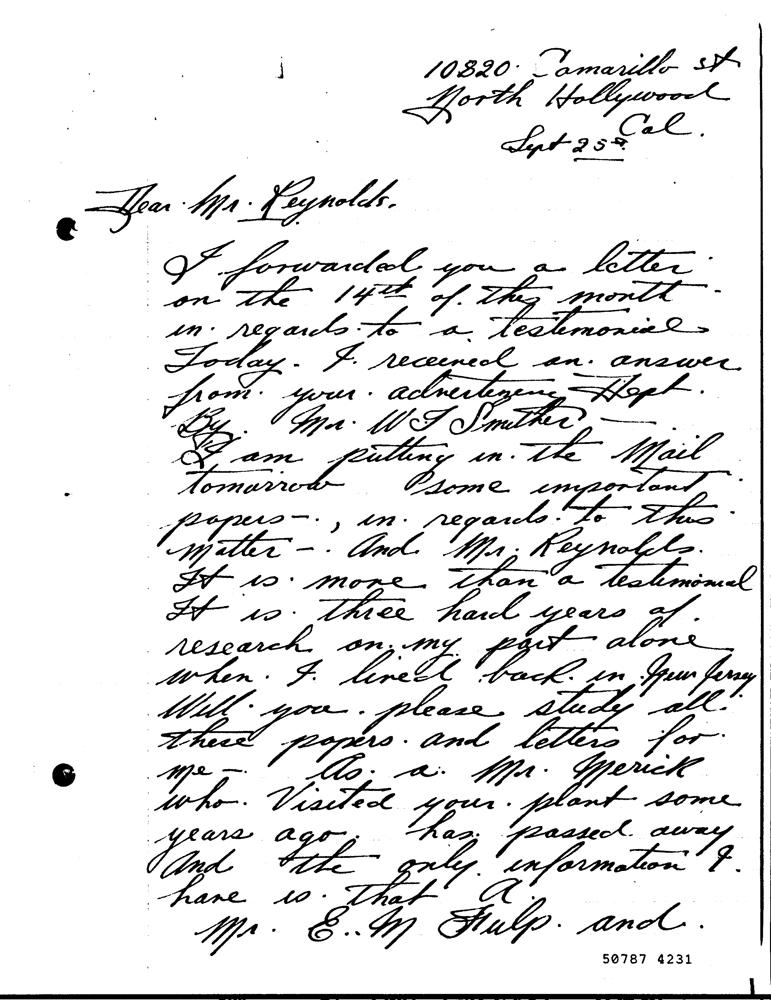 10820. Camarillo st
North Hollywood
Cal.
Sept 25th
Dear Mr. Reynolds.
I forwarded you a letter
on the 14th of this month -
in. regards. to a testimonial
Today. I. received an. answer
from. your. advertizeing Dept.
By. Mr. W F Smither -
I am putting in. the Mail
tomorrow some important
papers-., in. regards. to this
matter -. And Mr. Reynolds.
It is. more than a testimonial
It is. three hard years of
research on. my part alone
when. I. lived back. in. New Jersey
Will you. please study all.
these papers. and letters for
me -. As. a. Mr. Merick
who. Visited your. plant some
years ago. has passed away
And the only information I.
have is. that A
Mr. E.. M Fulp. and.
50787 4231